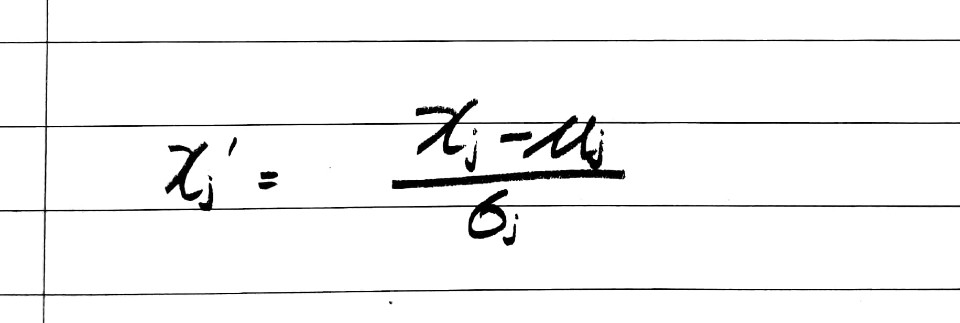 x_j' = \frac{x_j - μ_j}{σ_j}